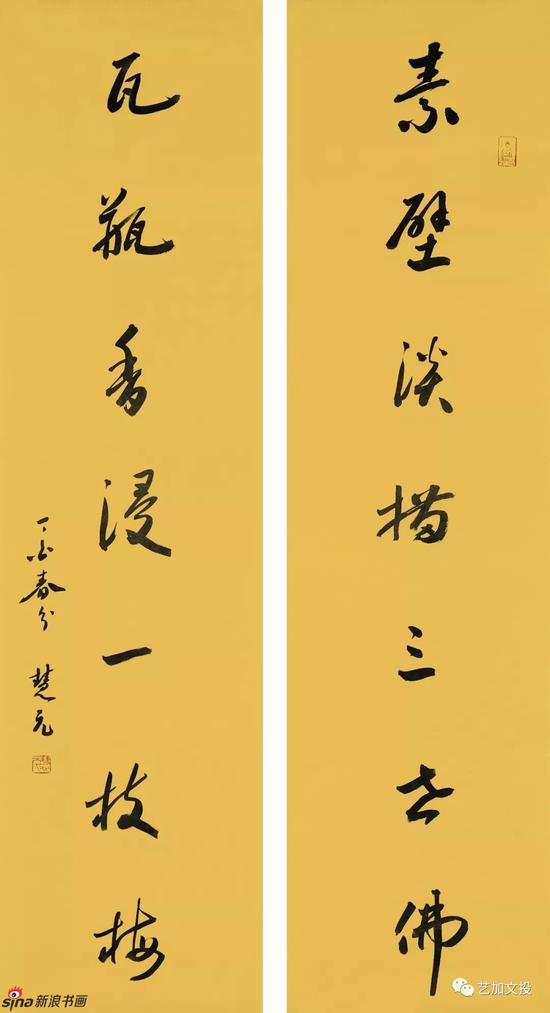 素壁淡描三世佛
瓦瓶香浸一枝梅
丁酉春分 慧元
sina新浪书画
艺加文投